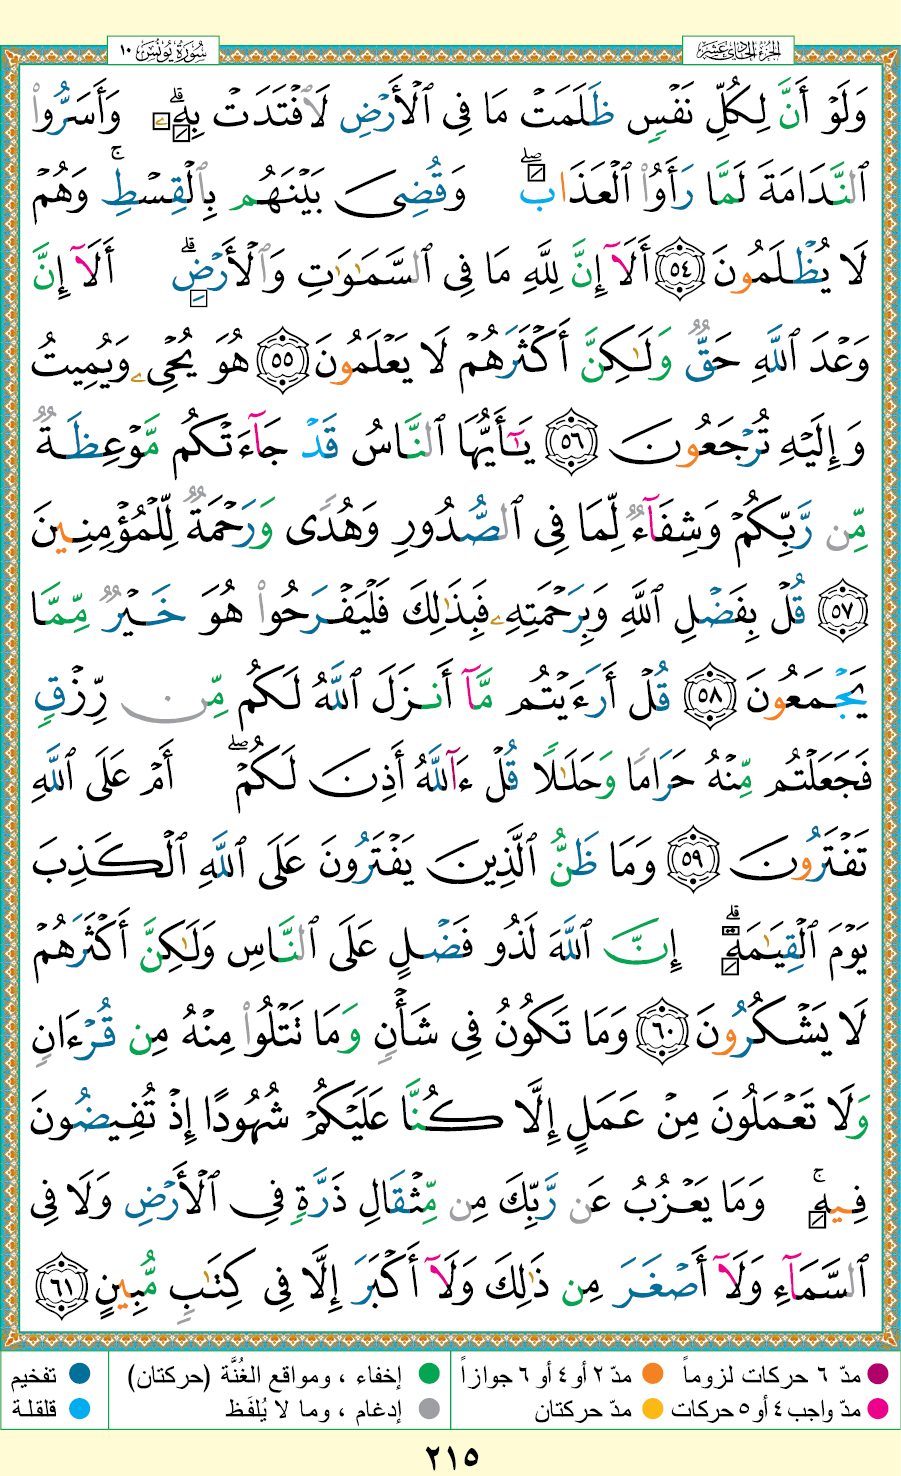 سُورَةُ يُونُسَ ١٠
الجُزءُ الحَادِي عَشَرَ
وَلَوْ أَنَّ لِكُلِّ نَفْسٍ ظَلَمَتْ مَا فِى ٱلْأَرْضِ لَٱفْتَدَتْ بِهِۦۗ وَأَسَرُّوا۟
ٱلنَّدَامَةَ لَمَّا رَأَوُا۟ ٱلْعَذَابَۖ وَقُضِىَ بَيْنَهُم بِٱلْقِسْطِۚ وَهُمْ
لَا يُظْلَمُونَ ٥٤ أَلَآ إِنَّ لِلَّهِ مَا فِى ٱلسَّمَٰوَٰتِ وَٱلْأَرْضِۗ أَلَآ إِنَّ
وَعْدَ ٱللَّهِ حَقٌّ وَلَٰكِنَّ أَكْثَرَهُمْ لَا يَعْلَمُونَ ٥٥ هُوَ يُحْىِۦ وَيُمِيتُ
وَإِلَيْهِ تُرْجَعُونَ ٥٦ يَٰٓأَيُّهَا ٱلنَّاسُ قَدْ جَآءَتْكُم مَّوْعِظَةٌ
مِّن رَّبِّكُمْ وَشِفَآءٌ لِّمَا فِى ٱلصُّدُورِ وَهُدًى وَرَحْمَةٌ لِّلْمُؤْمِنِينَ
٥٧ قُلْ بِفَضْلِ ٱللَّهِ وَبِرَحْمَتِهِۦ فَبِذَٰلِكَ فَلْيَفْرَحُوا۟ هُوَ خَيْرٌ مِّمَّا
يَجْمَعُونَ ٥٨ قُلْ أَرَءَيْتُم مَّآ أَنزَلَ ٱللَّهُ لَكُم مِّن رِّزْقٍ
فَجَعَلْتُم مِّنْهُ حَرَامًا وَحَلَٰلًا قُلْ ءَآللَّهُ أَذِنَ لَكُمْۖ أَمْ عَلَى ٱللَّهِ
تَفْتَرُونَ ٥٩ وَمَا ظَنُّ ٱلَّذِينَ يَفْتَرُونَ عَلَى ٱللَّهِ ٱلْكَذِبَ
يَوْمَ ٱلْقِيَٰمَةِۗ إِنَّ ٱللَّهَ لَذُو فَضْلٍ عَلَى ٱلنَّاسِ وَلَٰكِنَّ أَكْثَرَهُمْ
لَا يَشْكُرُونَ ٦٠ وَمَا تَكُونُ فِى شَأْنٍ وَمَا تَتْلُوا۟ مِنْهُ مِن قُرْءَانٍ
وَلَا تَعْمَلُونَ مِنْ عَمَلٍ إِلَّا كُنَّا عَلَيْكُمْ شُهُودًا إِذْ تُفِيضُونَ
فِيهِۚ وَمَا يَعْزُبُ عَن رَّبِّكَ مِن مِّثْقَالِ ذَرَّةٍ فِى ٱلْأَرْضِ وَلَا فِى
ٱلسَّمَآءِ وَلَآ أَصْغَرَ مِن ذَٰلِكَ وَلَآ أَكْبَرَ إِلَّا فِى كِتَٰبٍ مُّبِينٍ ٦١
مدّ ٦ حركات لزوماً مدّ ٢ أو ٤ أو ٦ جوازاً إخفاء ، ومواقع الغُنَّة (حركتان) تفخيم
مدّ واجب ٤ أو ٥ حركات مدّ حركتان إدغام ، وما لا يُلفَظ قلقلة
٢١٥